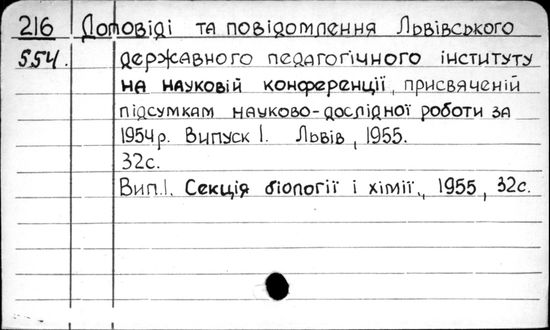 216 Доповіді та повідомлення Львівського
554. державного педагогічного інституту
на науковій конференції, присвяченій
підсумкам науково-дослідної роботи за
1954р. Випуск 1. Львів, 1955.
32с.
Вип.1. Секція біології і хімії., 1955, 32с.